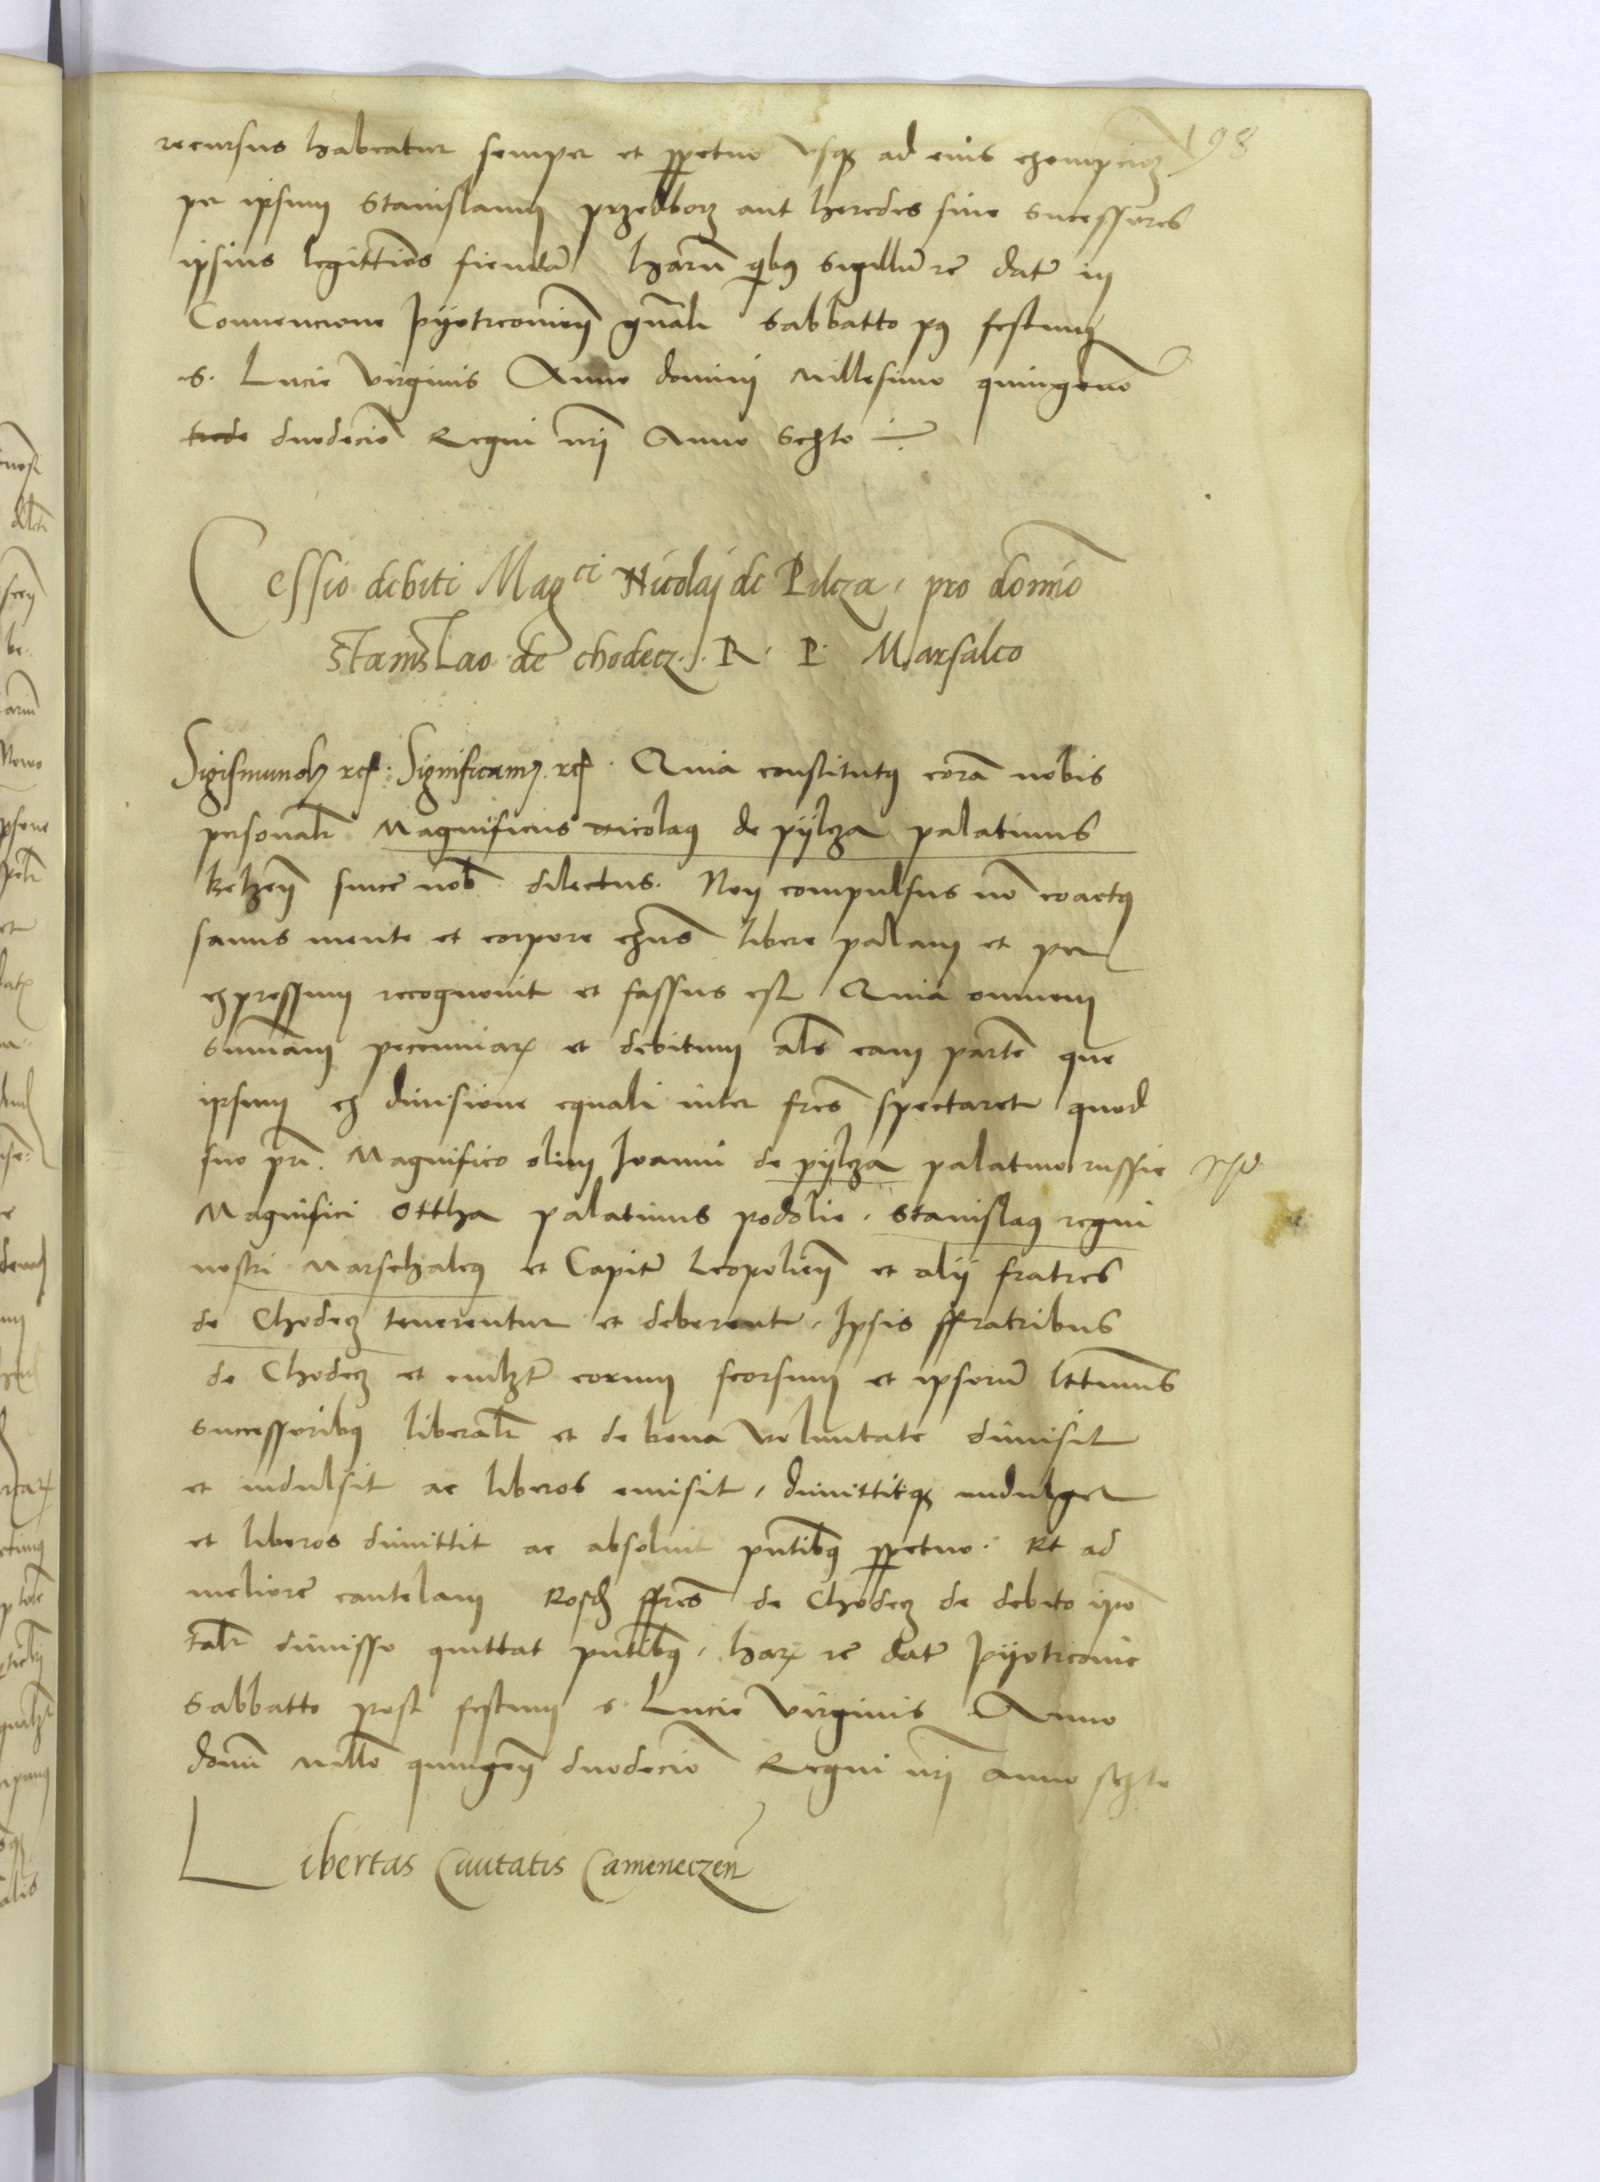 198
recursus habeatur semper et ppetuo vsq ad eius exempcioē
per ipsum Stanislaum przedborz aut heredes siue sucessores
ipsius legittīos fiendā harū qibus sigillū rē datū in
Conuencione Pyotrcouien gn̄ali sabbatto pꝰ festum
s. Lucie virginis Anno domini Millesimo quingenō
duodeciō Regni nr̄i Anno Sexto
Cessio debiti Magci Nicolaj de Pilcza pro domīo
Stanislao de chodecz. R. P. Marsalco
Sigismundꝰ rcͭ. Significamꝰ rcͭ. Quia constitutꝰ corā nobis
personalr̄ Magnificus nicolaꝰ de pylcza palatinus
Belzeñ sincē nob̄ dilectus. Non compulsus nō coactꝰ
sanus mente et corpore exn̄s libere palam et per
expressum recognouit et fassus est Quia omnem
summam pecuniaꝝ et debitum al̄s eam partē que
ipsum ex diuisione equali inter fr̄es spectaret quod
suo pr̄i. Magnifico olim Joanni de pylcza palatino russie
Magnifici Ottha palatinus podolie. Stanislaꝰ regni
nostri Marschalcꝰ et Capit̄ Leopolieñ et alij fratres
de Chodecz tenerentur et deberent. Ipsis ffratribus
de Chodecz et cuilzt̄ eorum seorsum et ipsorū l̄ttimis
successoribꝰ liberalr̄ et de bona voluntate dimisit
et indulsit ac liberos emisit, dimittitqꝫ indulget
et liberos dimittit ac absoluit pn̄tibꝰ ppetuo. Et ad
meliorē cautelam eosd̄ ffr̄es de Chodecz de debito ip̄o
talr̄ dimisso quittat pn̄tibꝰ. haꝝ rē datū Pyotrcouie
Sabbatto post festum s. Lucie virginis Anno
domī mill̄o quingeñ duodeciō Regni nr̄i anno sexto
Libertas Ciuitatis Cameneczeñ